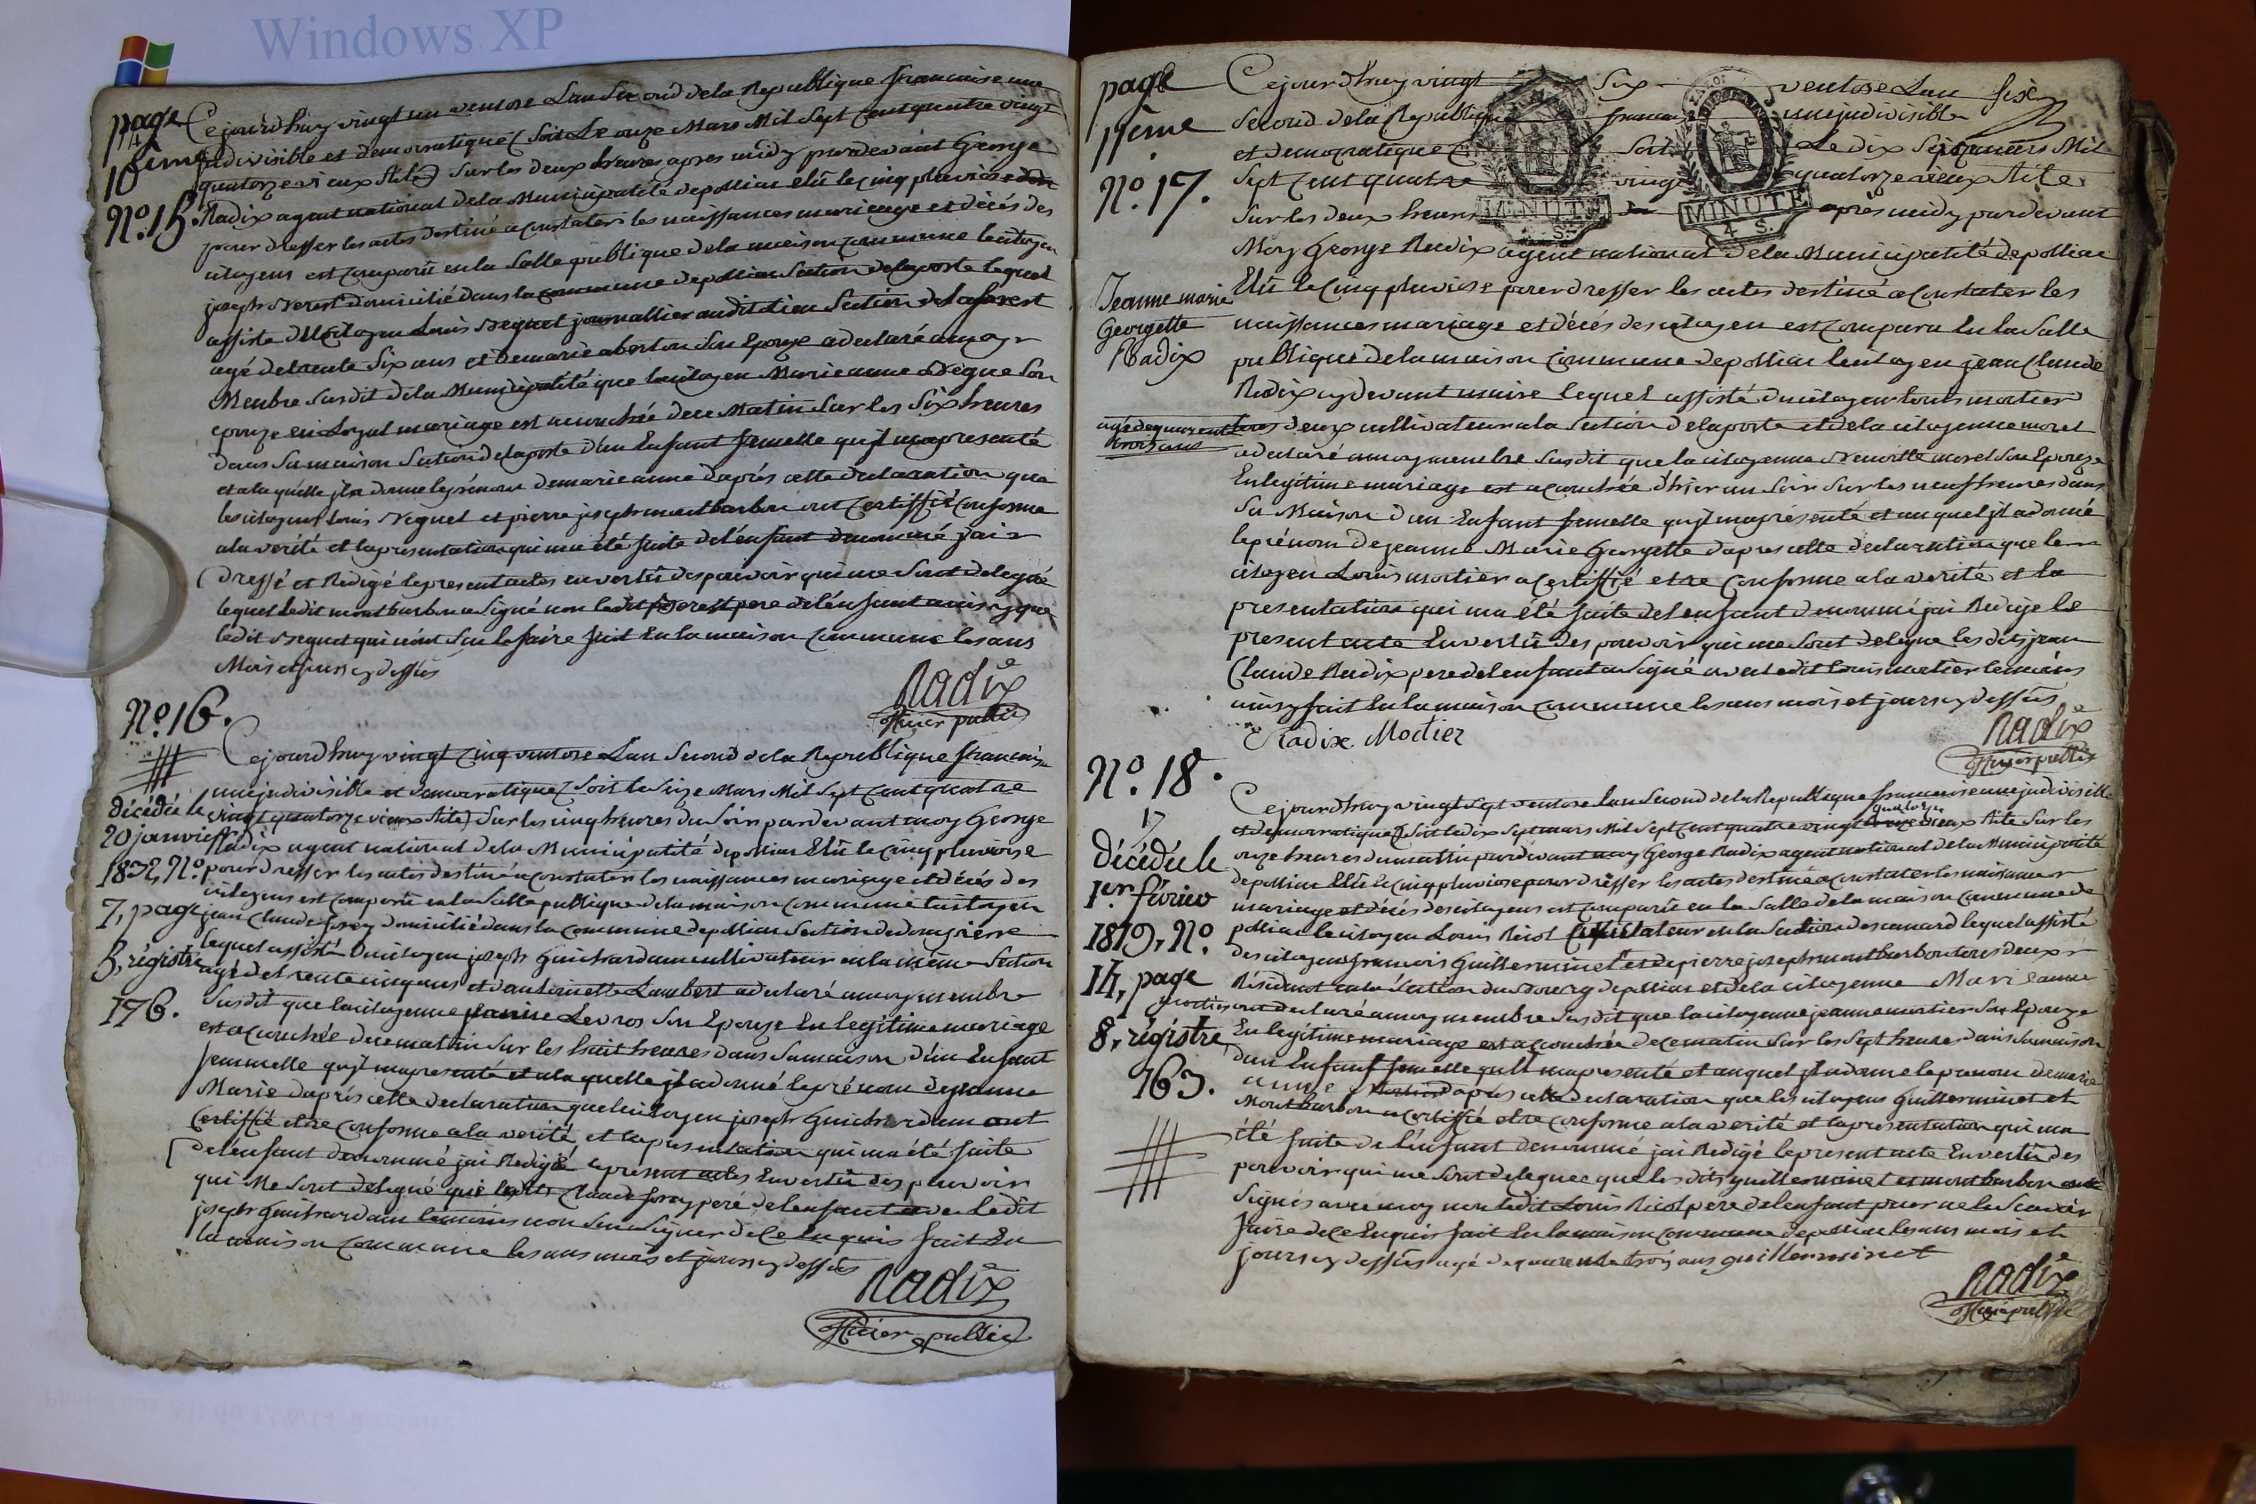 Windows XP
page
10ème
Ce jourd'huy vingt un ventose L'an Second de la Republique francaise une
indivisible et democratique (Soit Le onze Mars Mil Sept Cent quatre vingt
quatorze vieux Stile) Sur les deux heures apres midy pardevant George
No. 15. Radix agent national de la Municipalité de polliat elû le cinq pluviose
pour dresser les actes destiné a constater les naissances mariage et décés des
citoyens est comparû en la Salle publique de la maison commune le citoyen
joseph domicilié dans la commune de polliat Section de laposte lequel
assisté du Citoyen Louis journallier audit lieu Section de
agé de trente Six ans et de marie Son Epouze a declaré a moy
Membre Susdit de la Municipalité que la citoyen Marieanne Son
epouze en Loyal mariage est acouchée de ce Matin Sur les Six heures
dans Sa maison Section delaposte d'un Enfant femelle qu'jl ma presenté
et a la quélle jl a donné le prénom de marieanne daprés cette declaration que
les citoyens Louis et pierre joseph montbarbon ont Certiffié conforme
a la verité et la presentation qui ma été faite de l'énfant denommé j'ai
dressé et Rédigé le present actes en vertû des pouvoir qui me Sont delegué
lequel ledit montbarbon a Signé non ledit pere de l'énfant
ledit qui n'ont Sçu le faire fait En la maison commune les ans
Mois et jour cy dessus
Radix
officier public
No. 16.
Ce jourd'huy vingt Cinq ventose L'an Second de la Republique francaise
une jndivisible et democratique (Soit le Seize Mars Mil Sept Cent quatre
vingt quatorze vieux Stile) Sur les cinq heures du Soir pardevant moy George
Radix agent national de la Municipalité de polliat Elû le cinq pluviose
pour dresser les actes destiné a constater les naissances mariage et décés des
citoyens est comparû en la Salle publique de la maison commune le citoyen
jean Claude forey domicilié dans la commune de polliat Section de
lequel assisté du citoyen joseph Guichardan cultivateur en la même Section
agé de trente cinq ans et d'antoinette Lambert a declaré a moy membre
Susdit que la citoyenne Levros Son Epouze En legitime mariage
est acouchée de ce matin Sur les huit heures dans Sa maison d'un Enfant
femmelle qu'jl ma presenté et a la quelle jl a donné le prénom de jeanne
Marie daprés cette declaration que le citoyen joseph Guichardan ont
Certiffié etre conforme a la verité et la presentation qui ma été faite
de l'enfant denommé j'ai Redigé le present actes En vertû des pouvoir
qui Me Sont delegué que Claude forey peré de l'enfant avec ledit
joseph Guichardan non Sçu Signer de ce Enquis fait En
la maison commune les ans mois et jour cy dessus
Radix
officier public
décédée le
20 janvier
1832, No.
7, page
5, régistre
176.
page
11ème
Ce jourd'huy vingt Six ventose L'an
Second de la Republique francaise une jndivisible
et democratique Soit Le dix Sept mars Mil
No. 17. Sept Cent quatre vingt quatorze vieux Stile
MINUTE
4 S.
MINUTE
4 S.
Sur les deux heures apres midy pardevant
Moy George Radix agent national de la Municipalité de polliat
Elû le cinq pluviose pour dresser les actes destiné a Constater les
naissances mariage et décés des citoyen est comparu En la Salle
publique de la maison commune de polliat le citoyen jean Claude
Radix cy devant maire lequel assisté du citoyen Louis mortier
tous deux cultivateur a la Section de laposte et de la citoyenne morel
a declaré a moy membre Susdit que la citoyenne morel Son Epouze
En legitime mariage est acouchée d'hier au Soir Sur les neuf heures dans
Sa Maison d'un Enfant femelle qu'jl ma présenté et au quel jl a donné
le prénom de jeanne Marie Georgette dapres cette declaration que le
citoyen Louis mortier a Certiffié etre Conforme a la verité et la
presentation qui ma été faite de l'enfant denommé j'ai Redigé le
present acte En vertû des pouvoir qui me Sont delegue les dits jean
Claude Radix pere de l'enfant a Signé avec ledit Louis mortier temoins
fait En la maison commune les ans mois et jour cy dessus
Radix Mortier
Radix
officier public
Jeanne marie
Georgette
Radix
agé de quarente
trois ans
No. 18.
Ce jourd'huy vingt Sept ventose L'an Second de la Republique francaise une jndivisible
quatorze
et democratique (Soit le dix Sept mars Mil Sept Cent quatre vingt vieux Stile Sur les
onze heures du matin pardevant moy George Radix agent national de la Municipalité
de polliat Elû le cinq pluviose pour dresser les actes destiné a constater les naissances
mariage et décés des citoyens est comparû en la Salle de la maison commune de
polliat le citoyen Louis Ricol Cultivateur en la Section lequel assisté
des citoyens francois Guillerminet et de pierre joseph montbarbon tous deux
Résident en la Section du Bourg de polliat et de la citoyenne Marieanne
a declaré a moy membre Susdit que la citoyenne jeanne mortier Son Epouze
En legitime mariage est acouchée de ce matin Sur les Sept heures dans Sa maison
d'un Enfant femelle qu'il ma presenté et auquel jl a donné le prenom de marie
anne d'aprés cette declaration que les citoyens Guillerminet et
Montbarbon a certiffié etre conforme a la verité et la presentation qui ma
été faite de l'énfant denommé j'ai Redigé le present acte En vertû des
pouvoir qui me Sont deleguee que les dits guillerminet et montbarbon ont
Signés avec moy non ledit Louis Ricol pere de l'enfant pour ne le Scavoir
faire de ce Enquis fait En la maison commune de polliat les ans mois et
jour cy dessus agé de quarente trois ans guillerminet
Radix
officier public
décédée le
1er février
1819, No.
14, page
8, régistre
163.